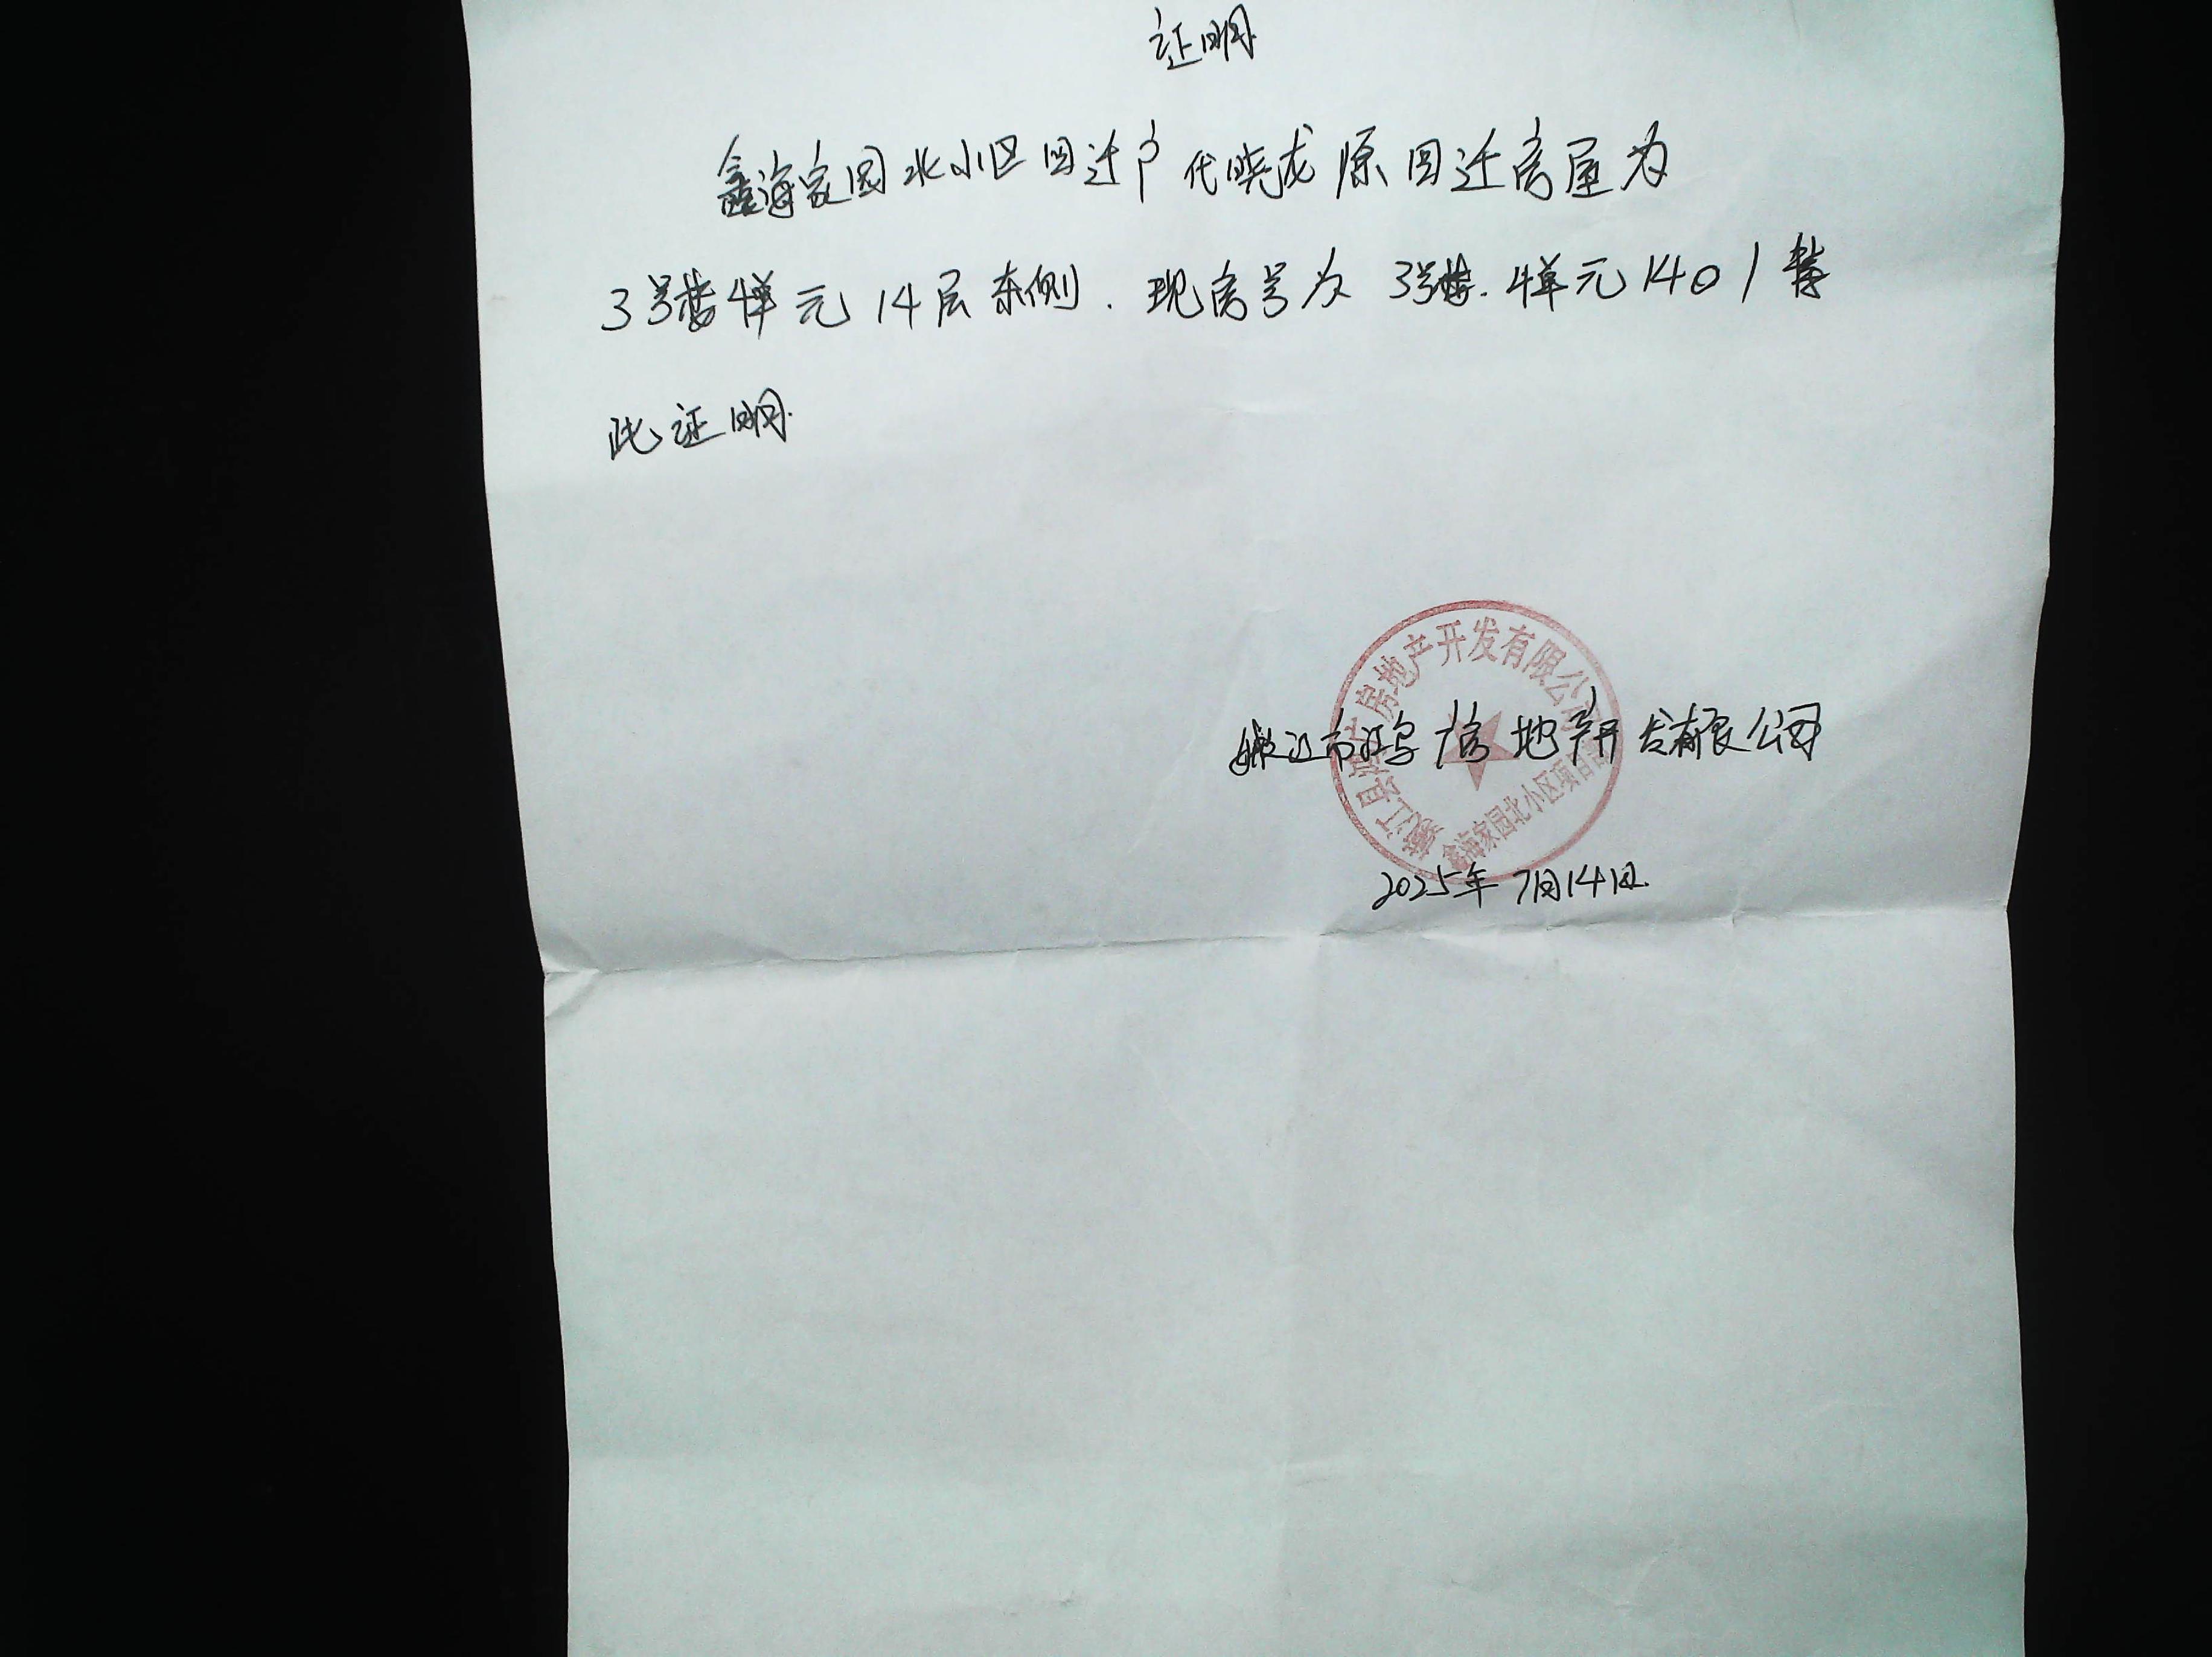 证明
鑫海家园北小区回迁户代晓龙原回迁房屋为
3号楼4单元14层东侧.现房号为3号楼.4单元1401特
此证明.
嫩江县鸿广房地产开发有限公司
嫩江市鸿广房地产开发有限公司
鑫海家园北小区项目部
2025年7月14日.